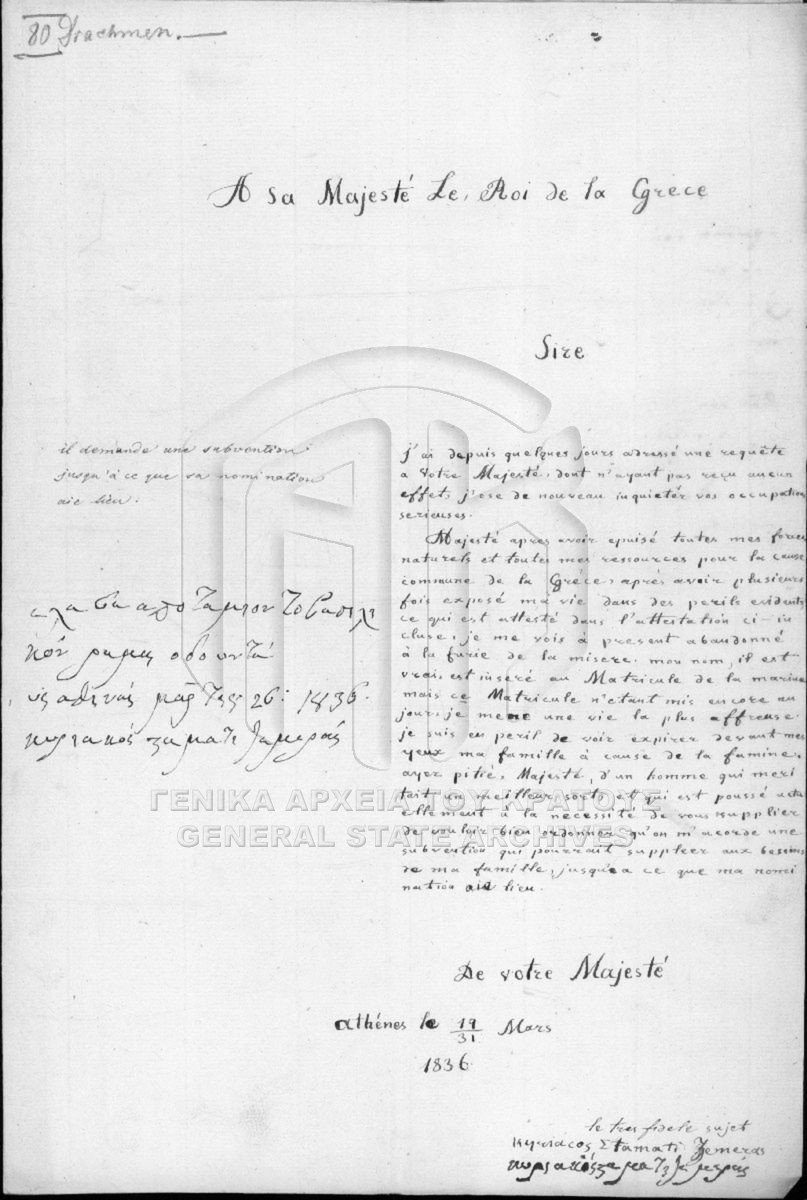 80 Drachmen.
A sa Majesté Le Roi de la Grece
Sire
il demande une subvention
jusqu'à ce que sa nomination
aie lieu.
j'ai depuis quelques jours adressé une requête
a Votre Majesté, dont n'ayant pas reçu aucun
effet, j'ose de nouveau inquiéter vos occupations
serieuses.
Majesté apres avoir epuisé toutes mes forces
naturels et toutes mes ressources pour la cause
commune de la Grèce, après avoir plusieurs
fois exposé ma vie dans des perils evidents
ce qui est attesté dans l'attestation ci-in
cluse, je me vois à present abandonné
à la furie de la misere. mon nom, il est
vrai, est inseré au Matricule de la marine
mais ce Matricule n'etant mis encore au
jour, je mene une vie la plus affreuse
je suis en peril de voir expirer devant mes
yeux ma famille à cause de la famine.
ayez pitié, Majesté, d'un homme qui meri
tait un meilleur sort, et qui est poussé actu
ellement à la necessité de vous supplier
de vouloir bien ordonner qu'on m'acorde une
subvention qui pourrait suppleer aux besoins
de ma famille, jusqu'a ce que ma nomi
nation aie lieu.
από το βασιλι
κόν
αθήνας 26: 1836.
κυριακός
ΓΕΝΙΚΑ ΑΡΧΕΙΑ ΤΟΥ ΚΡΑΤΟΥΣ
GENERAL STATE ARCHIVES
De votre Majesté
athénes le 19/31 Mars
1836
le tres fidele sujet
Κυριάcος Σtamati Zemeras